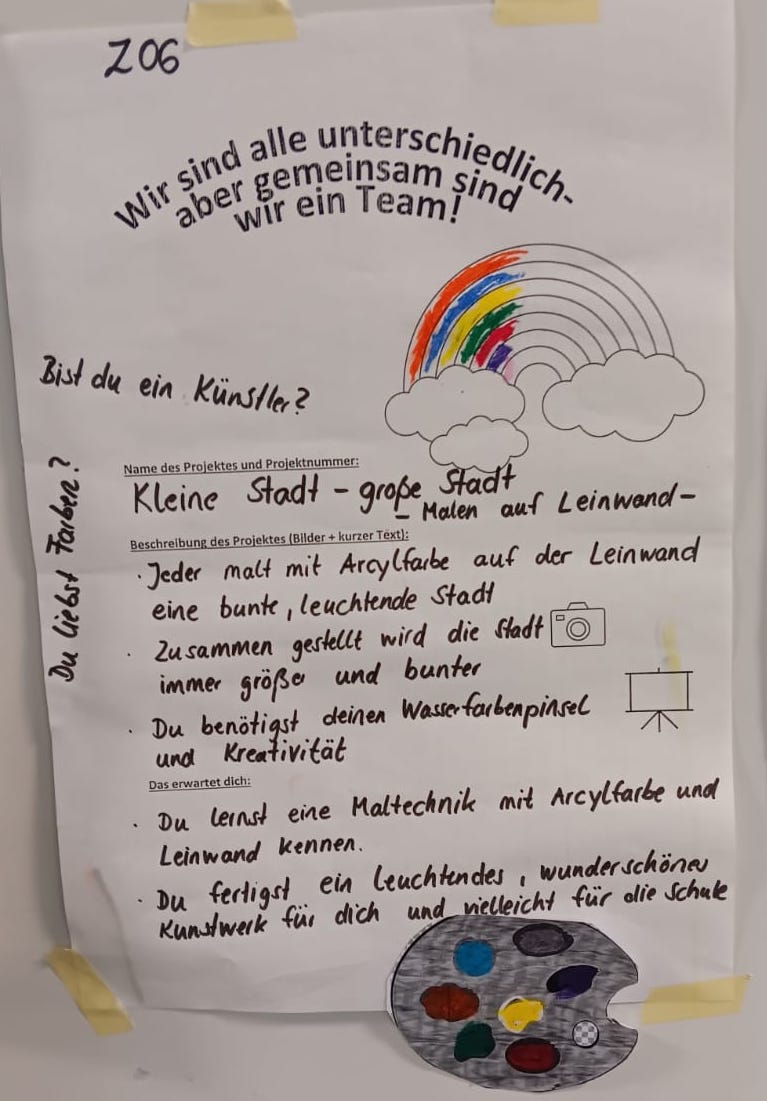 Z06
Wir sind alle unterschiedlich-
aber gemeinsam sind
wir ein Team!
Bist du ein Künstler?
Du liebst Farben?
Name des Projektes und Projektnummer:
Kleine Stadt - große Stadt
- Malen auf Leinwand -
Beschreibung des Projektes (Bilder + kurzer Text):
· Jeder malt mit Arcylfarbe auf der Leinwand
eine bunte, leuchtende Stadt
· Zusammen gestellt wird die Stadt
immer größer und bunter
· Du benötigst deinen Wasserfarbenpinsel
und Kreativität
Das erwartet dich:
· Du lernst eine Maltechnik mit Arcylfarbe und
Leinwand kennen.
· Du fertigst ein leuchtendes, wunderschönes
Kunstwerk für dich und vielleicht für die Schule